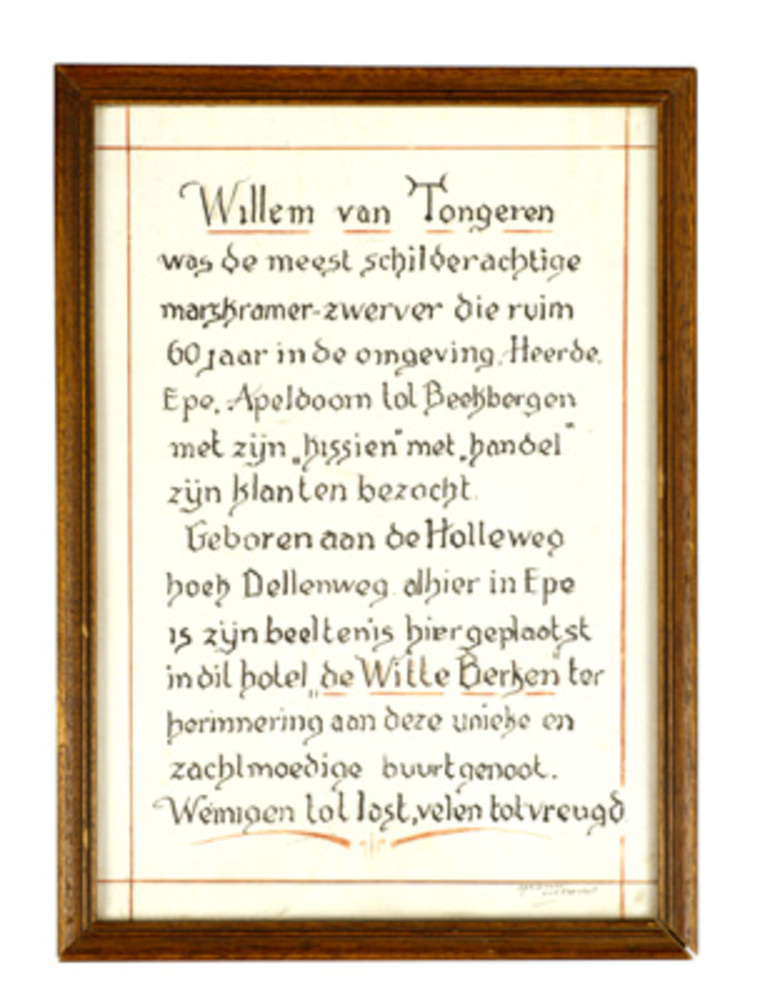 Willem van Tongeren
was de meest schilderachtige
marskramer-zwerver die ruim
60 jaar in de omgeving. Heerde.
Epe. Apeldoorn tot Beekbergen
met zijn „kissien” met „handel”
zijn klanten bezocht.
Geboren aan de Holleweg
hoek Dellenweg alhier in Epe
is zijn beeltenis hier geplaatst
in dit hotel „de Witte Berken” ter
herinnering aan deze unieke en
zachtmoedige buurtgenoot.
Weinigen tot last, velen tot vreugd